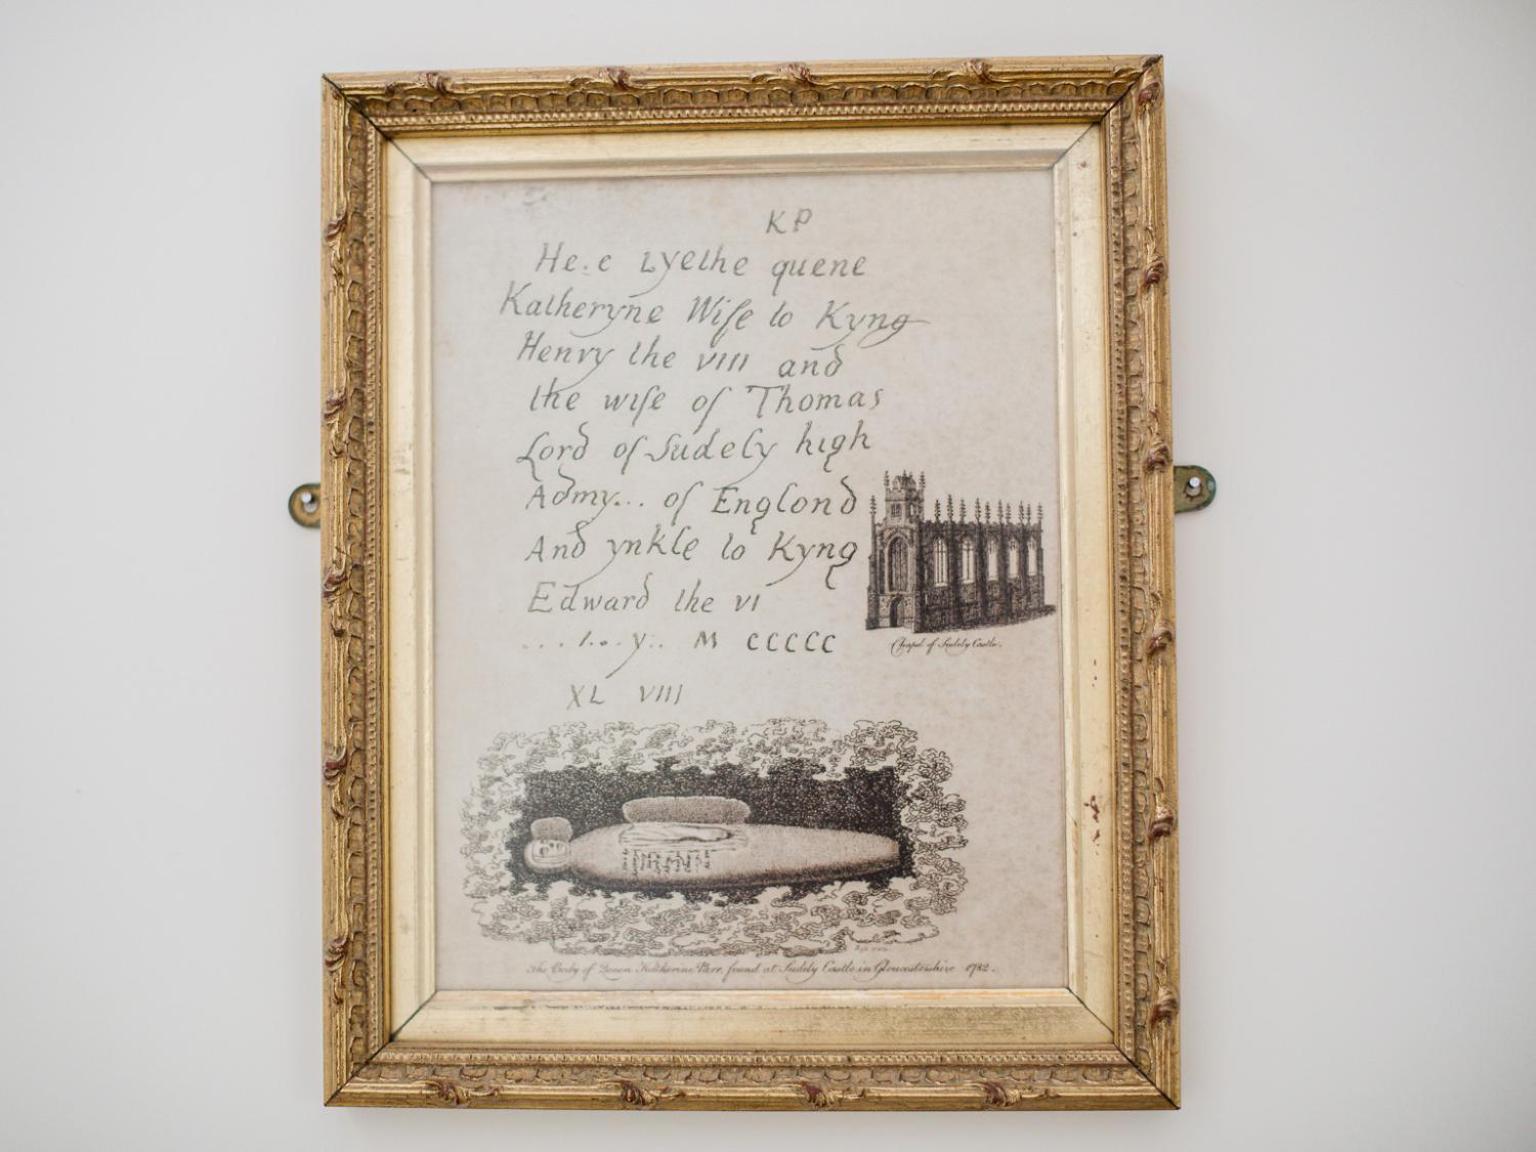 KP
He.e Lyethe quene
Katheryne Wife to Kyng
Henry the VIII and
the wife of Thomas
Lord of Sudely high
Admy... of Englond
And ynkle to Kyng
Edward the VI
. . . l . . . y . . M CCCCC
XL VIII
Chapel of Sudely Castle.
The Body of Queen Katherine Parr, found at Sudely Castle in Gloucestershire 1782.